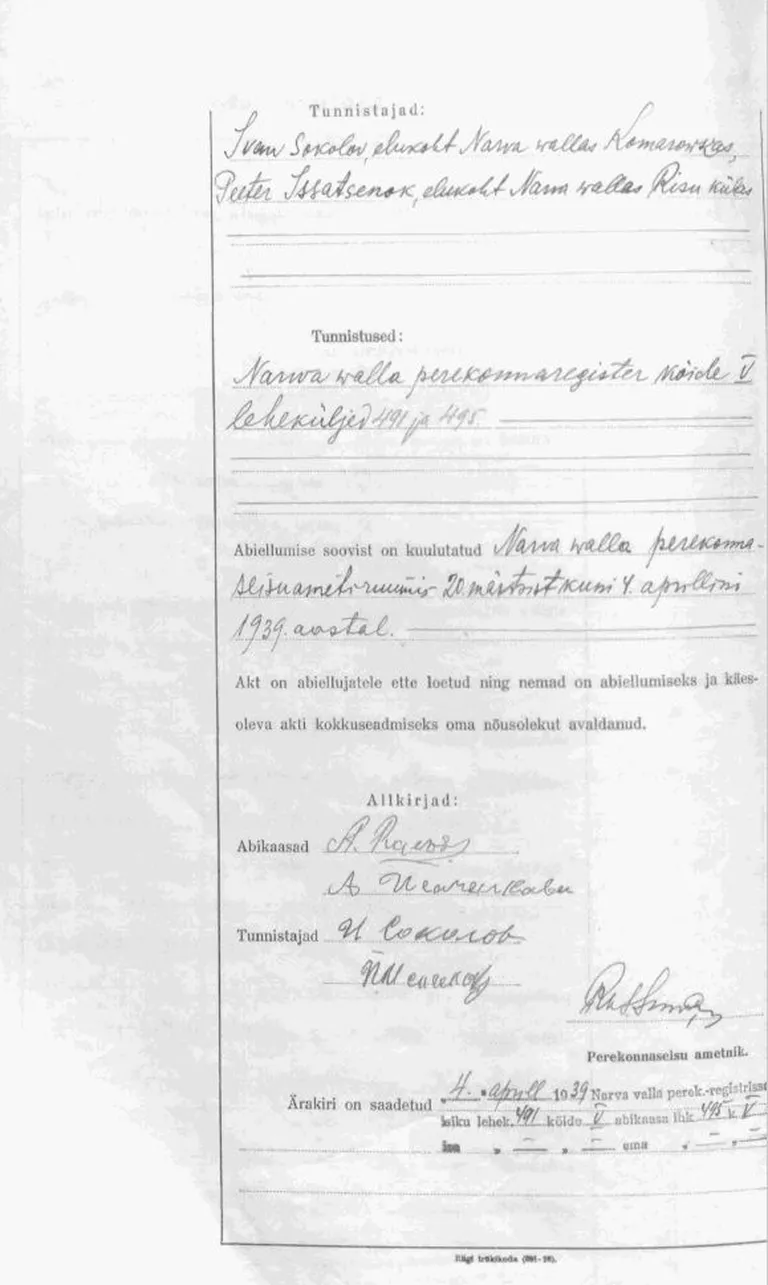 Tunnistajad:
Ivan Sokolov, elukoht Narva wallas Komarowkas,
Peeter Issatsenok, elukoht Narva wallas Risu külas
Tunnistused:
Narwa walla perekonnaregister köide V
leheküljed 491 ja 495.
Abiellumise soovist on kuulutatud Narva walla perekonna-
seisuametiruumis 20 märtsist kuni 4. aprillini
1939. aastal.
Akt on abiellujatele ette loetud ning nemad on abiellumiseks ja käes-
oleva akti kokkuseadmiseks oma nõusolekut avaldanud.
Allkirjad:
Abikaasad A.
А
Tunnistajad И Соколов
Perekonnaseisu ametnik.
Ärakiri on saadetud „4." aprill 1939 Narva valla perek.-registrisse
isiku lehek. 491 köide V abikaasa lhk 495 k V
isa „ — „ — ema „ — „ —
Riigi trükikoda